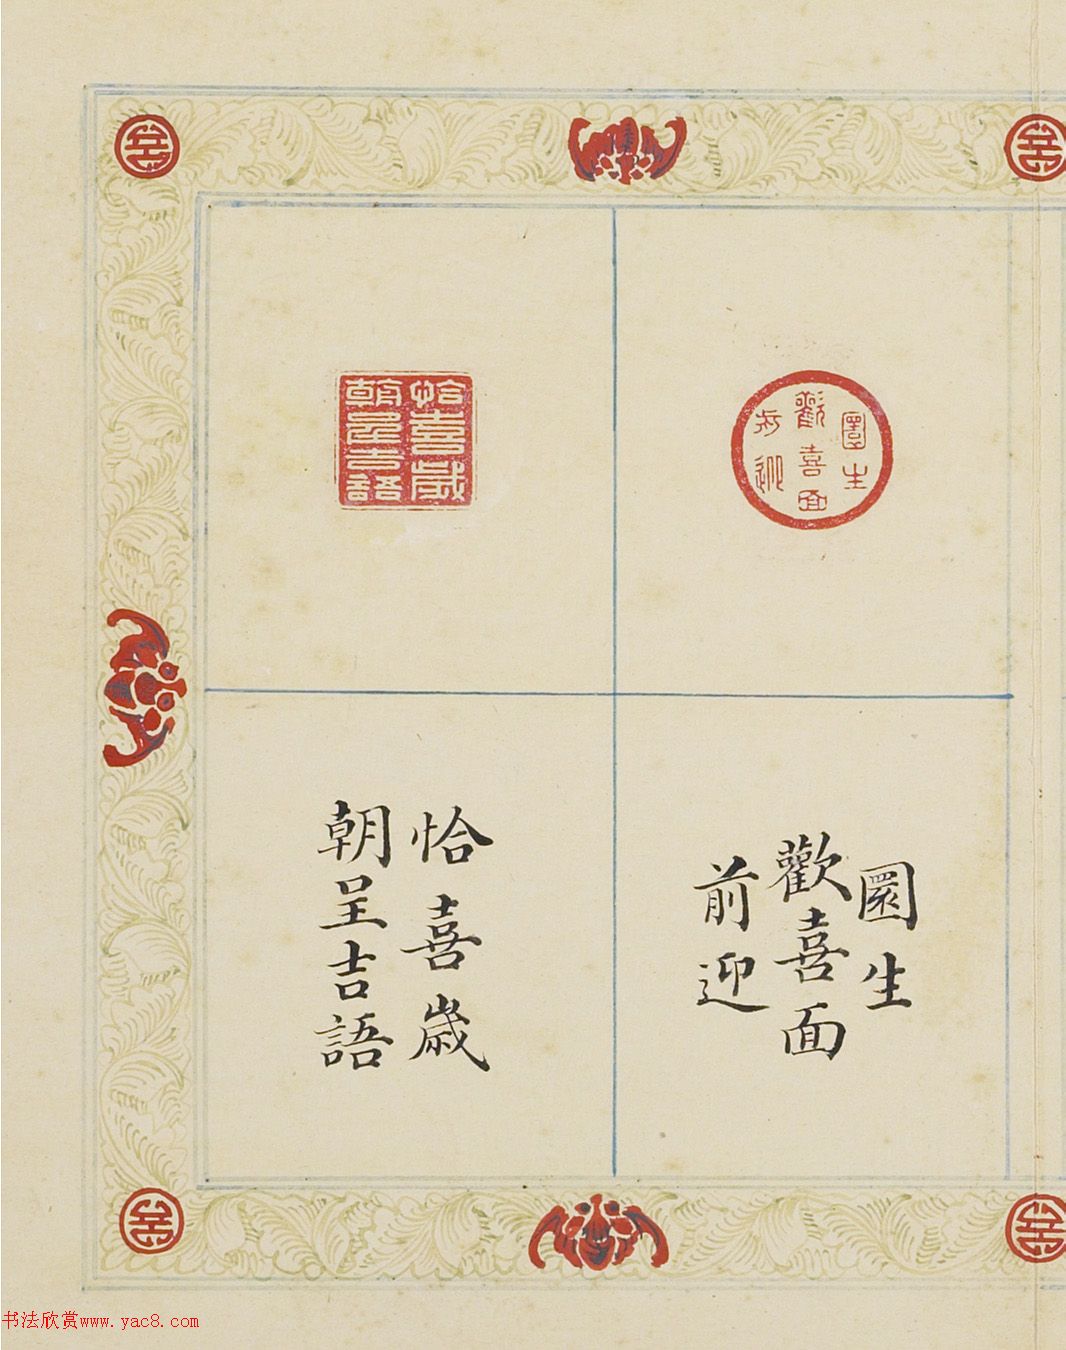 圜生
歡喜面
前迎
恰喜歲
朝呈吉語
圜生
歡喜面
前迎
恰喜歲
朝呈吉語
书法欣赏www.yac8.com